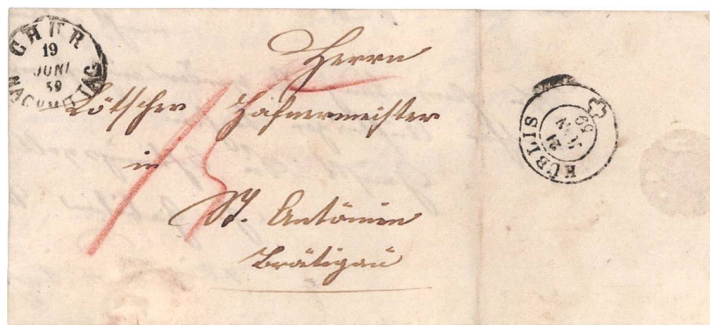 CHUR
19
JUNI
59
NACHMITTAG
Herrn
Lötscher Hafnermeister
in
St. Antönien
Brätigäu
15
KÜBLIS
21
JUN
59